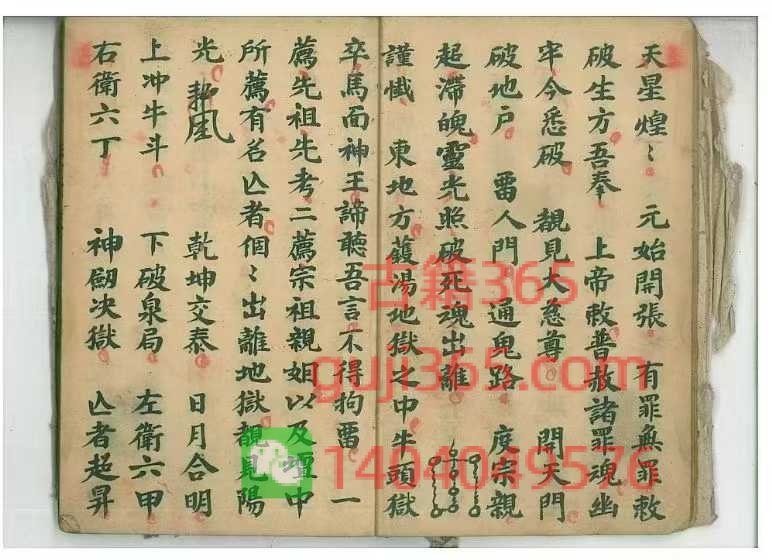 天星煌〻 元始開張 有罪無罪敕
破生方吾奉 上帝敕普救諸罪魂幽
牢今悉破 覩見大慈尊 開天門
破地户 畱人門 通鬼路 度宗親
起滯魄靈光照破死魂出離
謹懺 東地方鑊湯地獄之中牛頭獄
卒馬面神王諦聽吾言不得拘畱 一
薦先祖先考二薦宗祖親姐以及壇中
所薦有名亾者個〻出離地獄覩見陽
光 乾坤交泰 日月合明
上冲牛斗 下破泉局 左衛六甲
右衛六丁 神劒决獄 亾者超昇
古籍365
guj365.com
1404049576